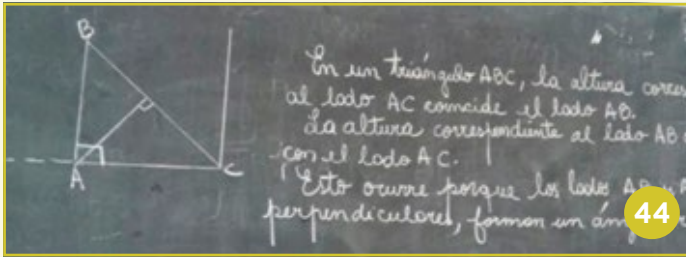 B
A
C
En un triángulo ABC, la altura corres
al lado AC coincide el lado AB.
La altura correspondiente al lado AB
con el lado AC.
Esto ocurre porque los lados AB y A
perpendiculares, forman un án
44